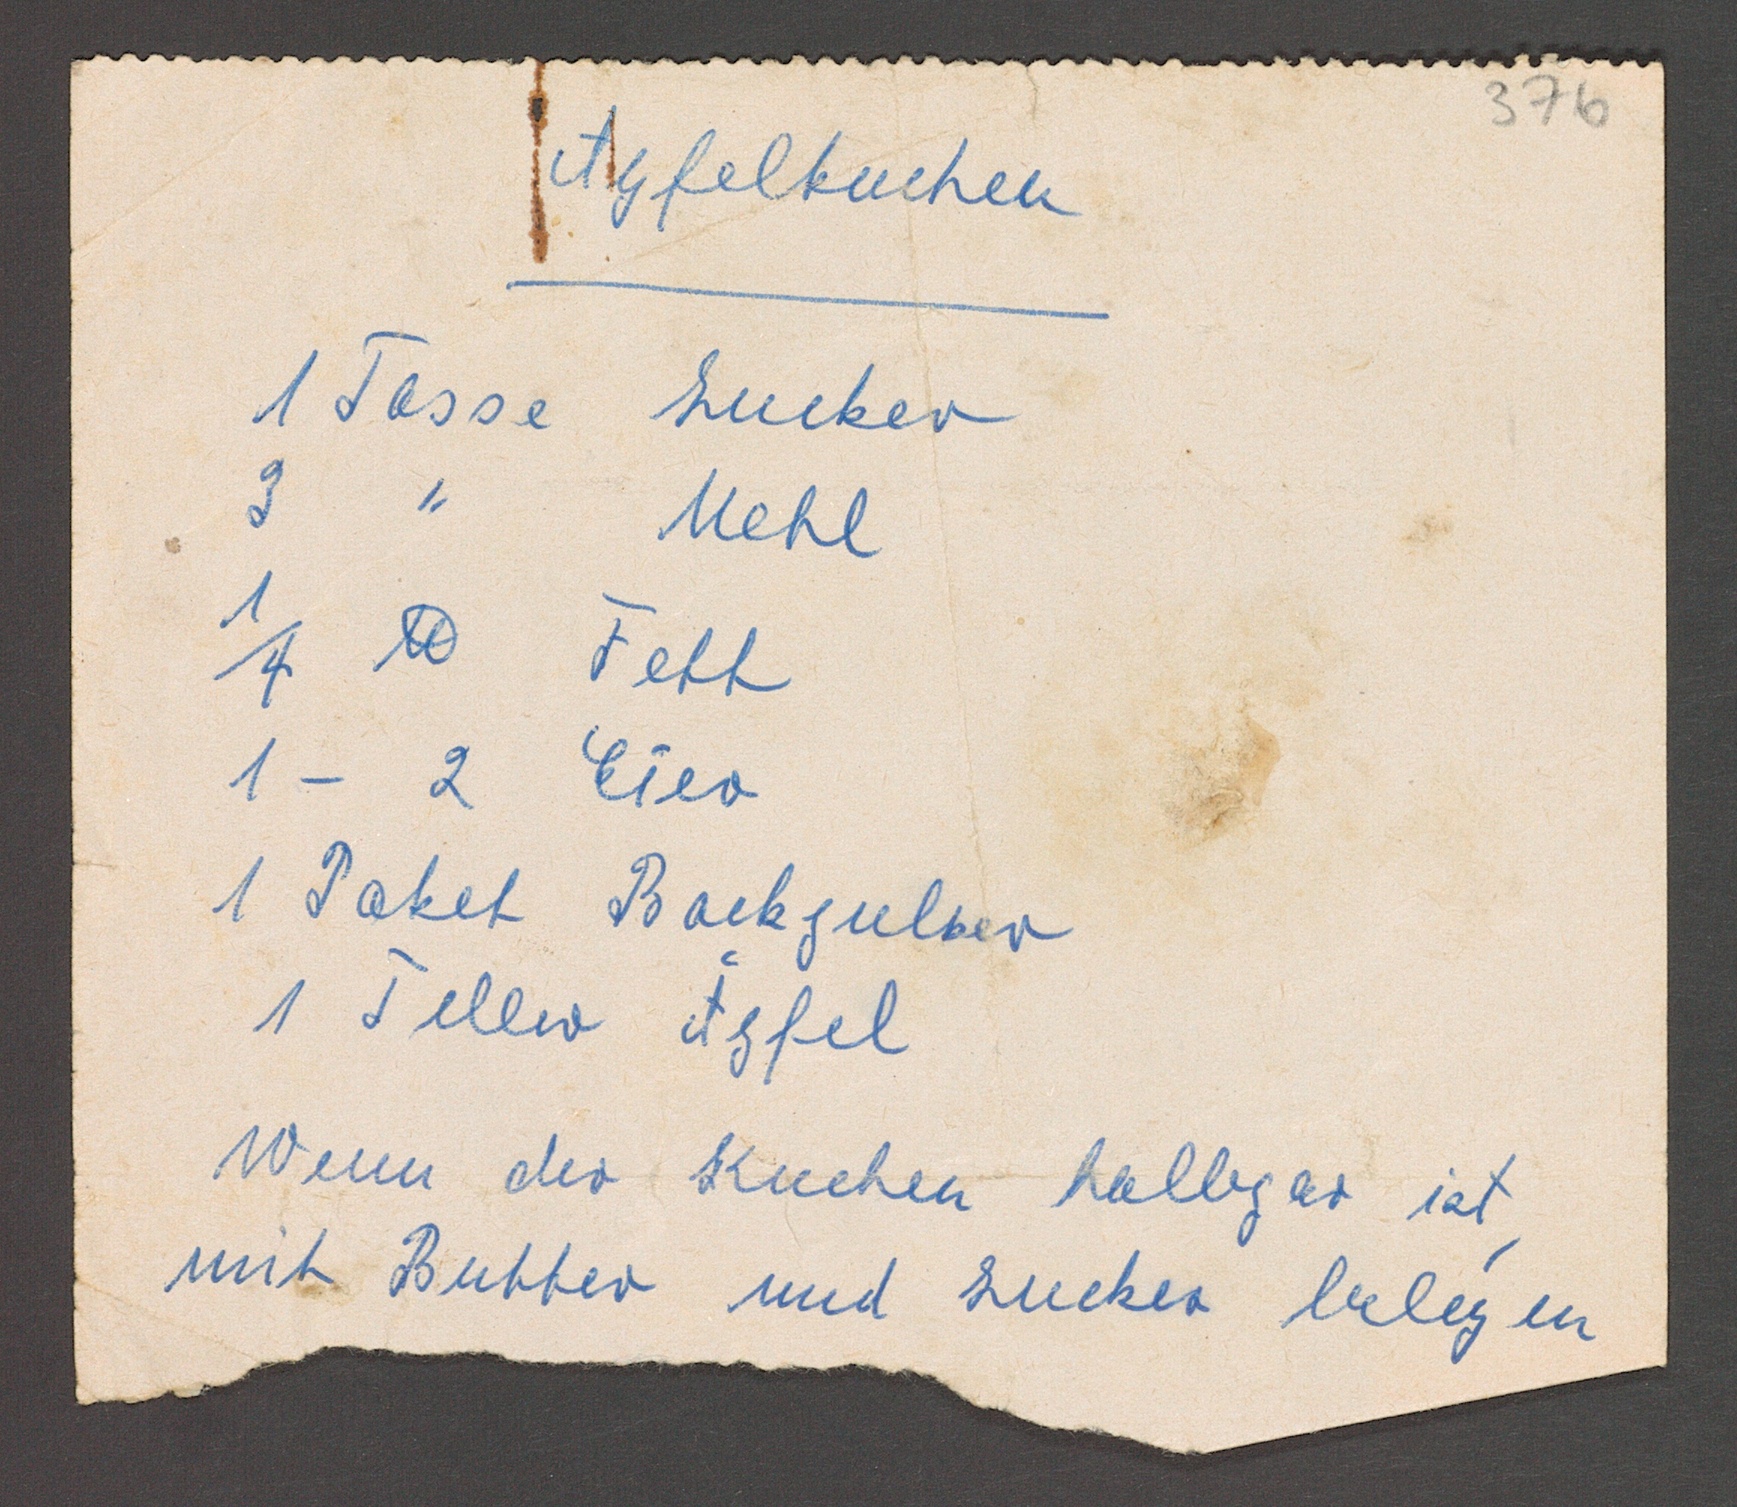 376
Apfelkuchen
1 Tasse Zucker
3 " Mehl
1/4 ℔ Fett
1 - 2 Eier
1 Paket Backpulver
1 Teller Äpfel
Wenn der Kuchen halbgar ist,
mit Butter und Zucker belegen